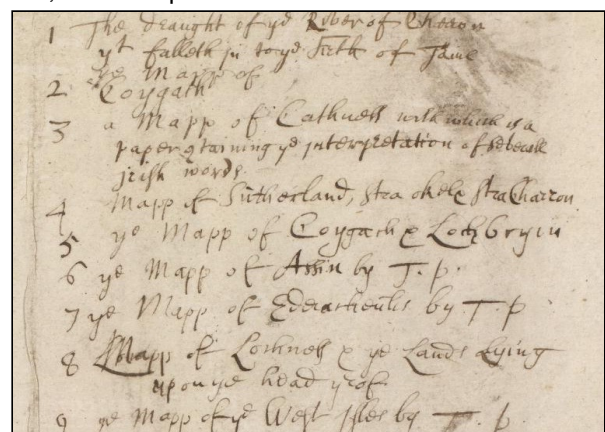 1 The draught of ye River of Charron
yt falleth in to ye firth of Taine
2 ye Mapp of
Coygach
3 a Mapp of Cathness with which is a
paper containing ye interpretation of severall
irish words.
4 Mapp of Sutherland, Stra okelx StraCharron
5 ye Mapp of Coygach & Lochbryin
6 ye Mapp of Assin by T. p.
7 ye Mapp of Ederacheulis by T. p
8 Mapp of Lochness & ye Lands Lying
upon ye head yrof
9 ye Mapp of ye West Isles by T. p.